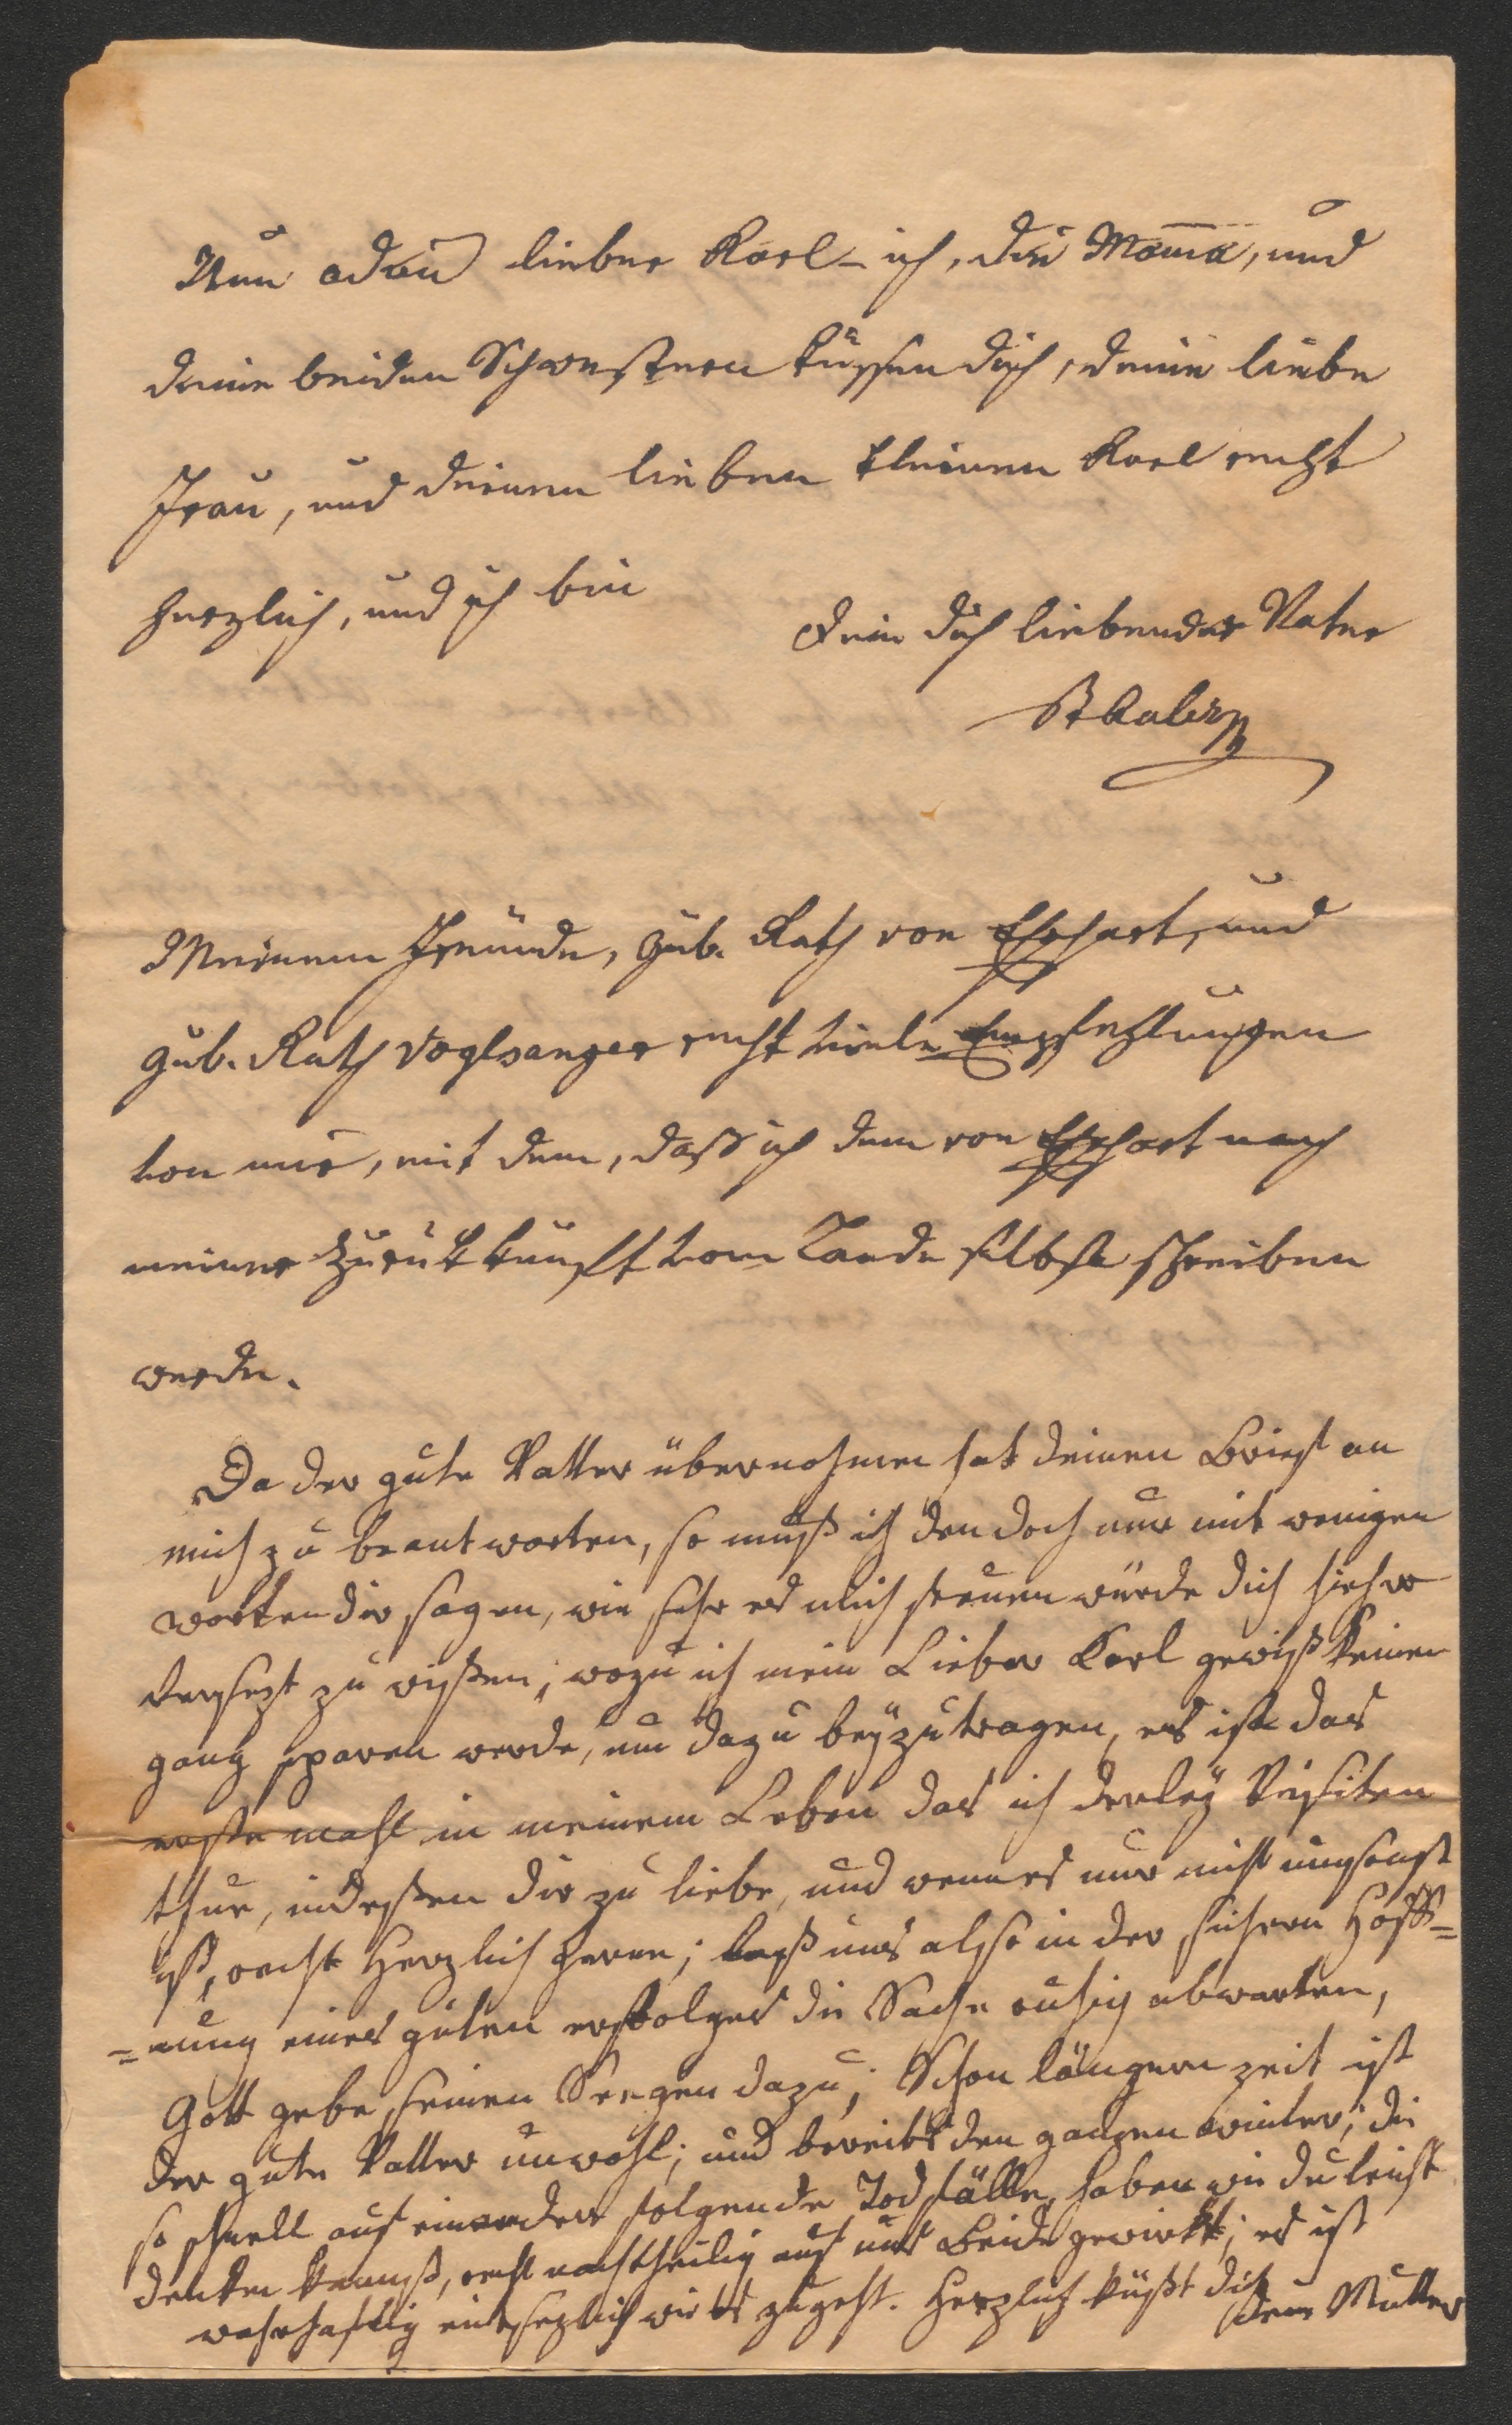 Nun adieu lieber Karl – ich, die Mama, und
deine beiden Schwestern küssen dich, deine liebe
Frau, und deinen lieben kleinen Karl recht
herzlich, und ich bin
dein dich liebender Vater
Meinem Freunde, Gub. Rath von Ehrhart, und
Gub. Rath Voglsanger recht viele Empfehlungen
von mir, mit dem, daß ich dem von Ehrhart nach
meiner Zurükkunft vom Lande selbst schreiben
werde.
Da der gute Vatter übernohmen hat deinen Brief an
mich zu beantworten, so muß ich den doch nur mit wenigen
worten dir sagen, wie sehr es mich freuen würde dich hieher
versezt zu wißen; wozu ich mein Lieber Karl gewiß keinen
gang sparen werde, um dazu beÿzutragen, es ist das
erste mahl in meinem Leben das ich derleÿ Visiten
thue, indeßen dir zu liebe, und wenn es nur nicht umsonst
ist, recht Herzlich gerne; laß uns also in der sichern Hoff=
=nung eines guten erfolges die Sache ruhig abwarten,
Gott gebe seinen Seegen dazu; Schon längere zeit ist
der gute Vatter unwohl; und bereits den ganzen winter; die
so schnell auf einander folgende Todfälle, haben wie du leicht
denken kannst, recht nachtheilig auf uns Beide gewirkt; es ist
wahrhaftig entsezlich wie es zugeht. Herzlich küßt dich
deine Mutter